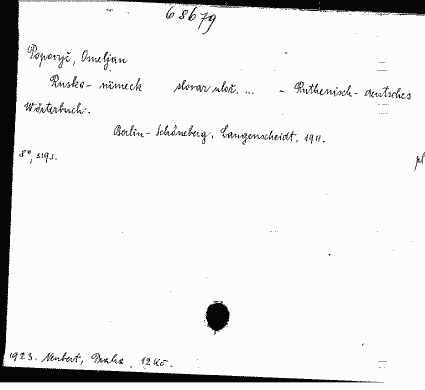 68679
Popovyč, Omeljan
Rusko-nimeck slovar ulož. ... - Ruthenisch-deutsches
Wörterbuch.
Berlin-Schöneberg, Langenscheidt, 1911.
8°, 319 s.
pl
1923. Neubert, Praha. 12 Kč.